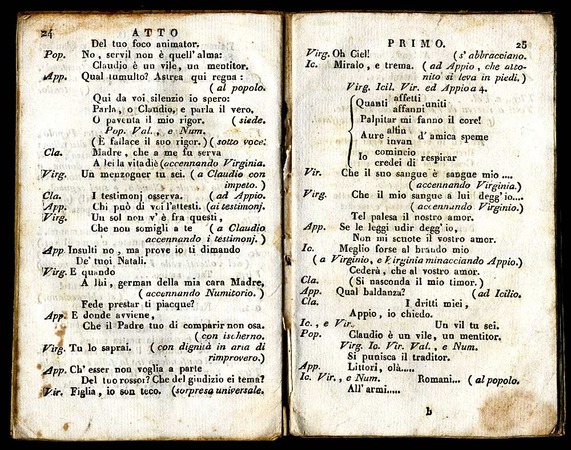 24 ATTO
Del tuo foco animator.
Pop. No, servil non è quell'alma:
Claudio è un vile, un mentitor.
App. Qual tumulto? Astrea qui regna:
(al popolo.
Qui da voi silenzio io spero:
Parla, o Claudio, e parla il vero.
O paventa il mio rigor. (siede.
Pop. Val., e Num.
(È fallace il suo rigor.) (sotto voce.
Cla. Madre, che a me fu serva
A lei la vita diè (accennando Virginia.
Virg. Un menzogner tu sei. (a Claudio con
impeto.)
Cla. I testimonj osserva. (ad Appio.
App. Chi può di voi l'attesti. (ai testimonj.
Virg. Un sol non v'è fra questi,
Che non somigli a te (a Claudio
accennando i testimonj.)
App. Insulti no, ma prove io ti dimando
De' tuoi Natali.
Virg. E quando
A lui, german della mia cara Madre,
(accennando Numitorio.)
Fede prestar ti piacque?
App. E donde avviene,
Che il Padre tuo di comparir non osa.
(con ischerno.
Virg. Tu lo saprai. (con dignità in aria di
rimprovero.)
App. Ch'esser non voglia a parte
Del tuo rossor? Che del giudizio ei tema?
Vir. Figlia, io son teco. (sorpresa universale.
PRIMO. 25
Virg. Oh Ciel! (s'abbracciano.
Ic. Miralo, e trema. (ad Appio, che atto-
nito si leva in piedi.)
Virg. Icil. Vir. ed Appio a 4.
Quanti affetti uniti
affanni
Palpitar mi fanno il core!
Aure alfin d'amica speme
invan
Io comincio respirar
credei di
Vir. Che il suo sangue è sangue mio ....
(accennando Virginia.)
Virg. Che il mio sangue a lui degg'io....
(accennando Virginio.)
Tel palesa il nostro amor.
App. Se le leggi udir degg'io,
Non mi scuote il vostro amor.
Ic. Meglio forse al brando mio
(a Virginio, e Virginia minacciando Appio.)
Cederà, che al vostro amor.
Cla. (Si nasconda il mio timor.)
App. Qual baldanza? (ad Icilio.
Cla. I dritti miei,
Appio, io chiedo.
Ic., e Vir. Un vil tu sei.
Pop. Claudio è un vile, un mentitor.
Virg. Ic. Vir. Val., e Num.
Si punisca il traditor.
App. Littori, olà.....
Ic. Vir., e Num. Romani... (al popolo.
All'armi.....
b